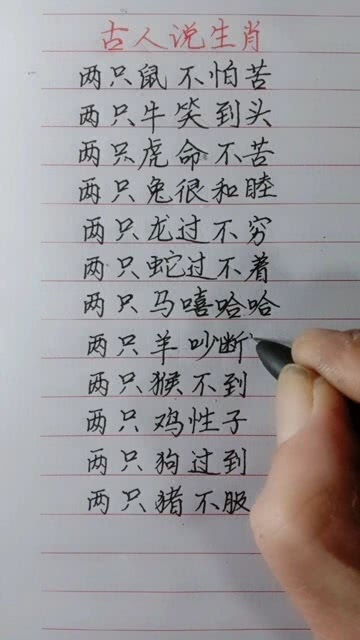 古人说生肖
两只鼠不怕苦
两只牛笑到头
两只虎命不苦
两只兔很和睦
两只龙过不穷
两只蛇过不着
两只马嘻哈哈
两只羊吵断
两只猴不到
两只鸡性子
两只狗过到
两只猪不服